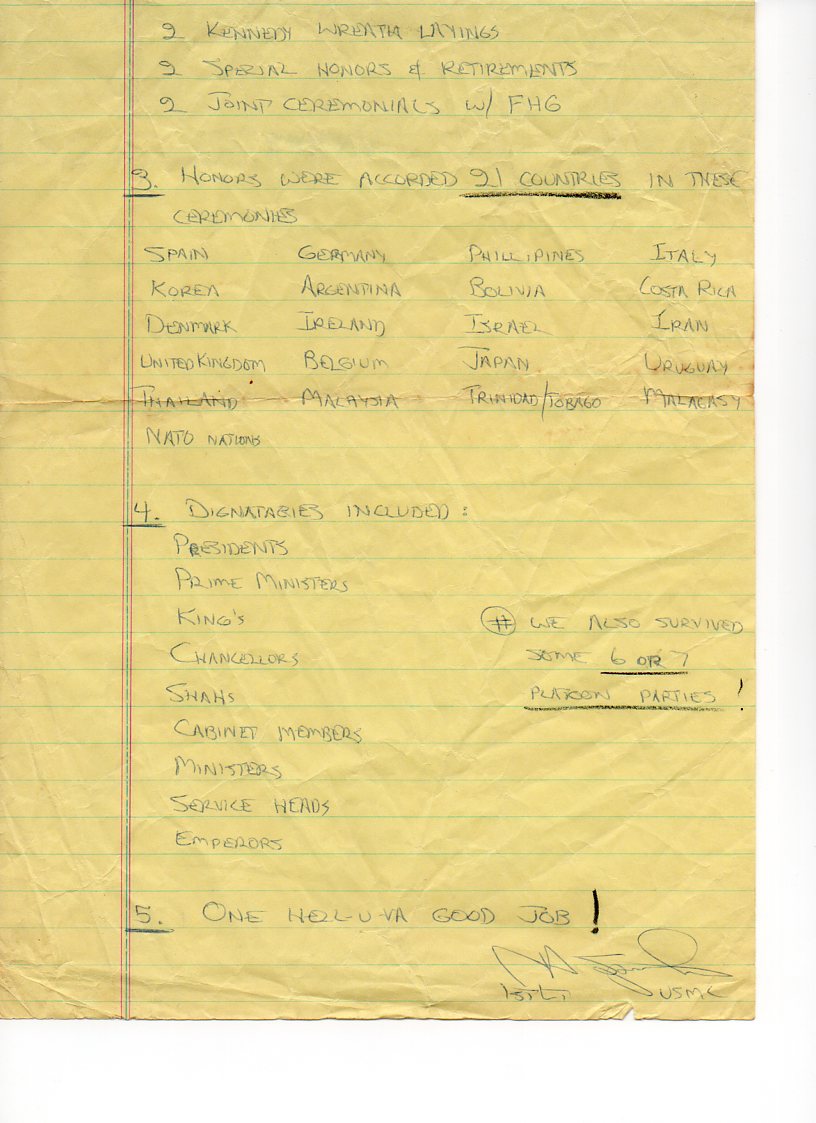 2 KENNEDY WREATH LAYINGS
2 SPECIAL HONORS & RETIREMENTS
2 JOINT CEREMONIALS W/ FHG
3. HONORS WERE ACCORDED 21 COUNTRIES IN THESE
CEREMONIES
SPAIN GERMANY PHILLIPINES ITALY
KOREA ARGENTINA BOLIVIA COSTA RICA
DENMARK IRELAND ISRAEL IRAN
UNITED KINGDOM BELGIUM JAPAN URUGUAY
THAILAND MALAYSIA TRINIDAD/TOBAGO MALAGASY
NATO NATIONS
4. DIGNATARIES INCLUDED :
PRESIDENTS
PRIME MINISTERS
KING'S
# WE ALSO SURVIVED
CHANCELLORS
SOME 6 OR 7
SHAHS
PLATOON PARTIES !
CABINET MEMBERS
MINISTERS
SERVICE HEADS
EMPERORS
5. ONE HELL-U-VA GOOD JOB !
1st Lt USMC